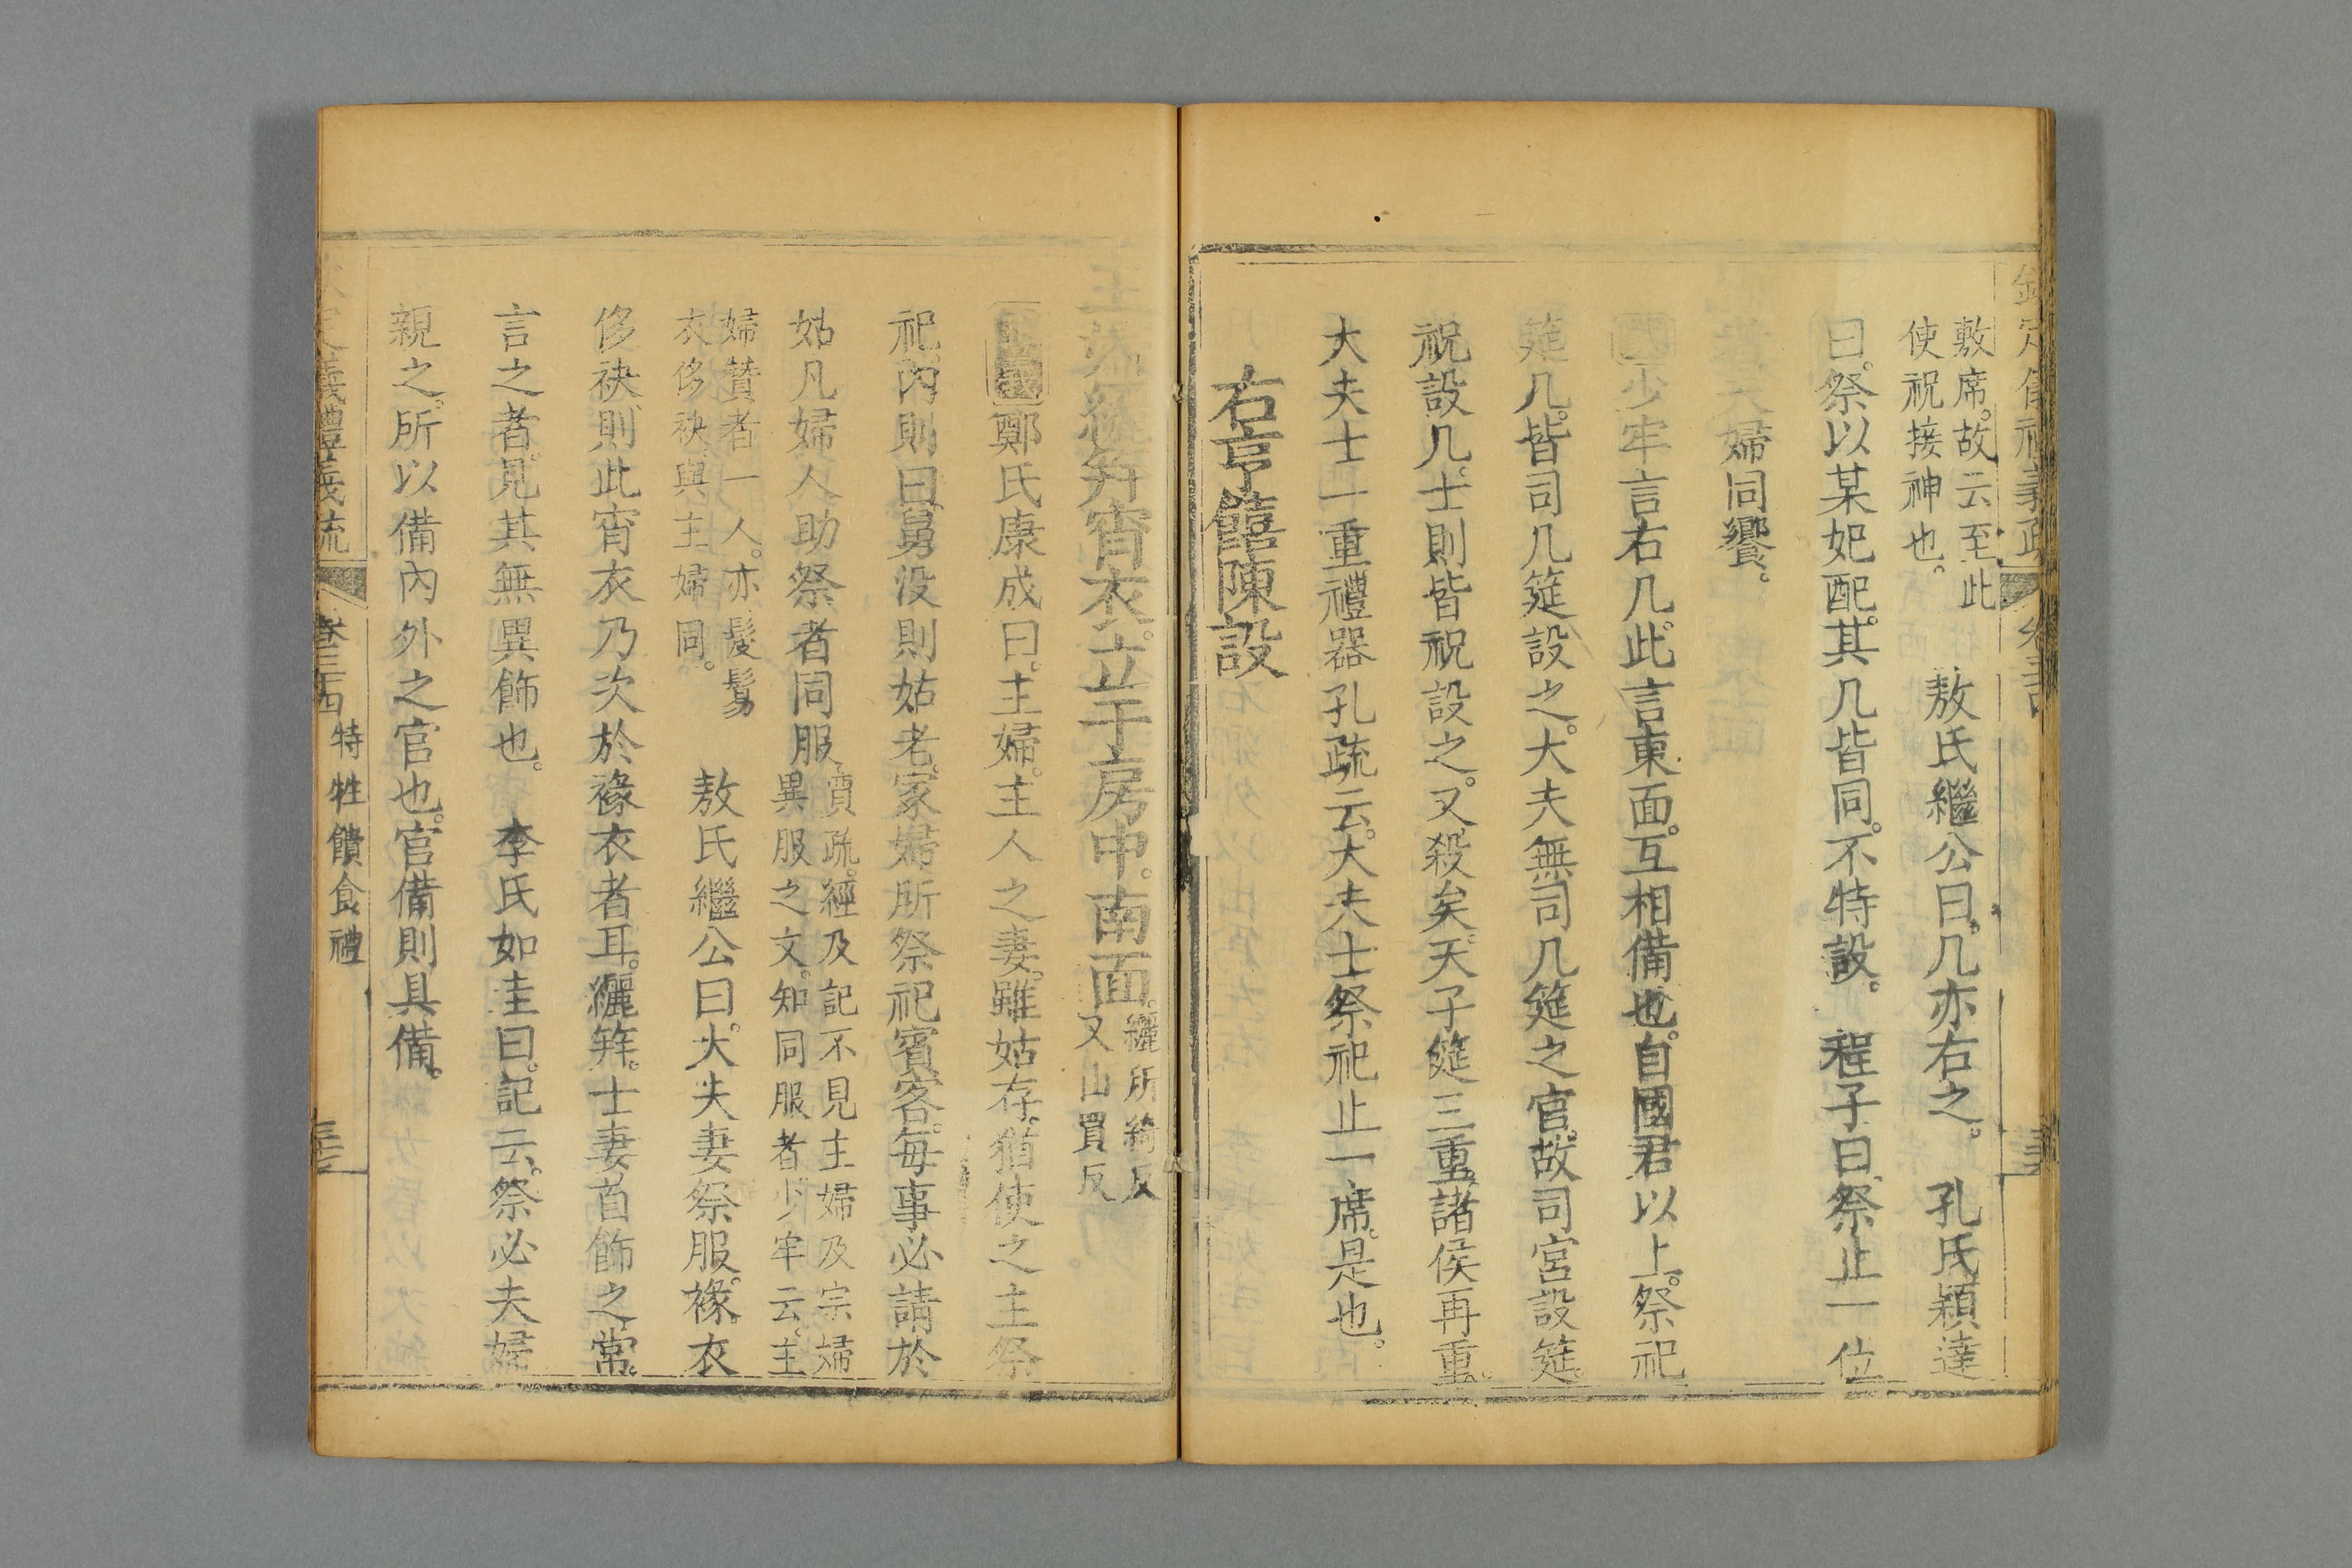 敷席故云至此
使祝接神也。
敖氏繼公曰。几亦右之。 孔氏穎達
曰。祭以某妃配。其几皆同。不特設。 程子曰。祭止一位
夫婦同饗。
少牢言右几。此言東面。互相備也。自國君以上。祭祀
筵几。皆司几筵設之。大夫無司几筵之官。故司宮設筵。
祝設几。士則皆祝設之。又殺矣。天子筵三重。諸侯再重。
大夫士一重。禮器孔疏云。大夫士祭祀止一席。是也。
右亨饎陳設
主婦纚笄宵衣。立于房中。南面。
纚所綺反
又山買反
鄭氏康成曰。主婦。主人之妻。雖姑存。猶使之主祭
祀。內則曰。舅没則姑老。冢婦所祭祀賓客。每事必請於
姑。凡婦人助祭者同服。
賈疏。經及記不見主婦及宗婦
異服之文。知同服者。少牢云。主
婦贊者一人。亦髲鬄
衣侈袂。與主婦同。
敖氏繼公曰。大夫妻祭服。褖衣
侈袂。則此宵衣乃次於褖衣者耳。纚笄。士妻首飾之常。
言之者。見其無異飾也。 李氏如圭曰。記云。祭必夫婦
親之。所以備內外之官也。官備則具備。
義禮義疏 卷三十四 特牲饋食禮